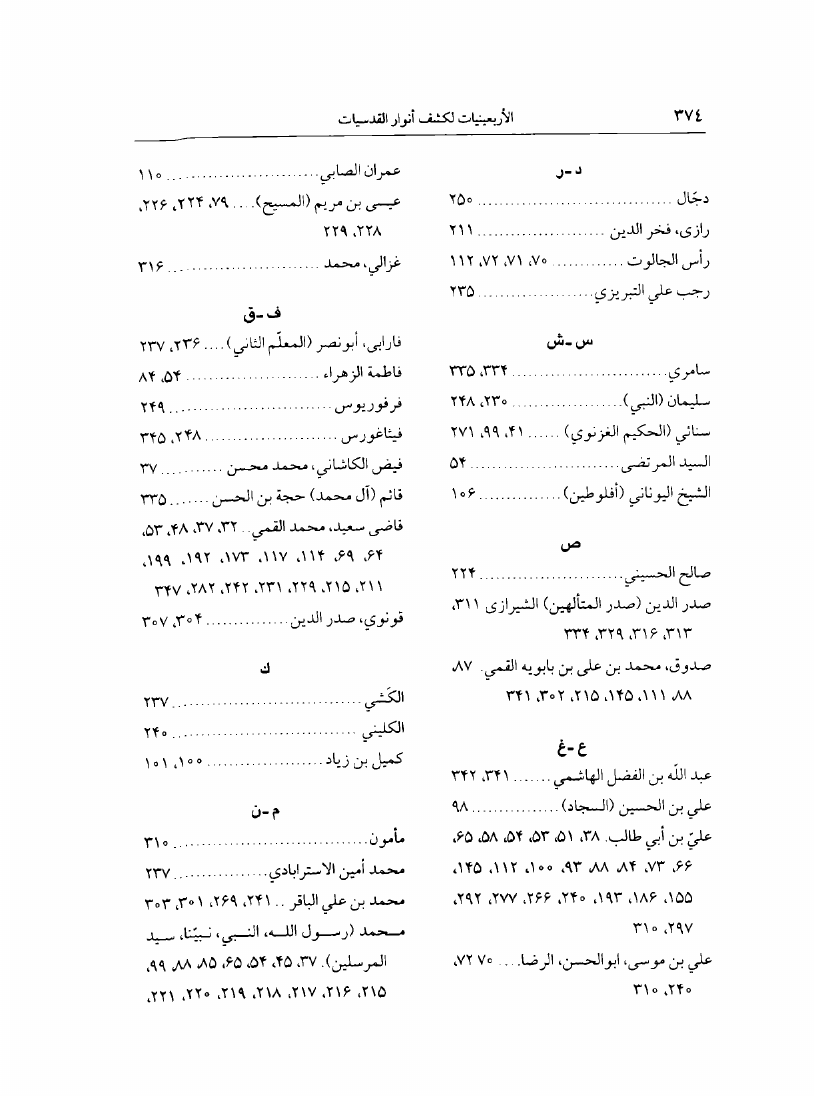 ٣٧٤ الأربعينيات لكشف أنوار القدسيات
د-ر
دجّال ................................ ٢۵٠
رازى، فخر الدين ...................... ٢١١
رأس الجالوت ............. ٧٠، ٧١، ٧٢، ١١٢
رجب علي التبريزي .................... ٢٣۵
س-ش
سامري ........................... ٣٣۴، ٣٣۵
سليمان (النبي) ................... ٢٣٠، ٢۴٨
سنائي (الحكيم الغزنوي) ...... ۴١، ٩٩، ٢٧١
السيد المرتضى .......................... ۵۴
الشيخ اليوناني (أفلوطين) .............. ١٠۶
ص
صالح الحسيني ......................... ٢٢۴
صدر الدين (صدر المتألهين) الشيرازي ٣١١،
٣١٣، ٣١۶، ٣٢٩، ٣٣۴
صدوق، محمد بن علي بن بابويه القمي. ٨٧،
٨٨، ١١١، ١۴۵، ٢١۵، ٣٠٢، ٣۴١
ع-غ
عبد اللّه بن الفضل الهاشمي ....... ٣۴١، ٣۴٢
علي بن الحسين (السجاد) ............... ٩٨
عليّ بن أبي طالب. ٣٨، ۵١، ۵٣، ۵۴، ۵٨، ۶۵،
۶۶، ٧٣، ٨۴، ٨٨، ٩٣، ١٠٠، ١١٢، ١۴۵،
١۵۵، ١٨۶، ١٩٣، ٢۴٠، ٢۶۶، ٢٧٧، ٢٩٢،
٢٩٧، ٣١٠
علي بن موسى، ابوالحسن، الرضا.... ٧٠ ٧٢،
٢۴٠، ٣١٠
عمران الصابي ........................... ١١٠
عيسى بن مريم (المسيح).... ٧٩، ٢٢۴، ٢٢۶،
٢٢٨، ٢٢٩
غزالي، محمد ........................... ٣١۶
ف-ق
فارابى، أبونصر (المعلّم الثاني) .... ٢٣۶، ٢٣٧
فاطمة الزهراء ....................... ۵۴، ٨۴
فرفوريوس ............................ ٢۴٩
فيثاغورس ....................... ٢۴٨، ٣۴۵
فيض الكاشاني، محمد محسن ........... ٣٧
قائم (آل محمد) حجة بن الحسن ....... ٣٣۵
قاضى سعيد، محمد القمي.. ٣٢، ٣٧، ۴٨، ۵٣،
۶۴، ۶٩، ١١۴، ١١٧، ١٧٣، ١٩٢، ١٩٩،
٢١١، ٢١۵، ٢٢٩، ٢٣١، ٢۴٢، ٢٨٢، ٣۴٧
قونوي، صدر الدين ............... ٣٠۴، ٣٠٧
ك
الكَشّي ................................. ٢٣٧
الكليني ................................ ٢۴٠
كميل بن زياد .................... ١٠٠، ١٠١
م-ن
مأمون .................................. ٣١٠
محمد أمين الاسترابادي ................ ٢٣٧
محمد بن علي الباقر .. ٢۴١، ٢۶٩، ٣٠١، ٣٠٣
محمد (رسول اللّه، النبي، نبيّنا، سيد
المرسلين). ٣٧، ۴۵، ۵۴، ۶۵، ٨۵، ٨٨، ٩٩،
٢١۵، ٢١۶، ٢١٧، ٢١٨، ٢١٩، ٢٢٠، ٢٢١،